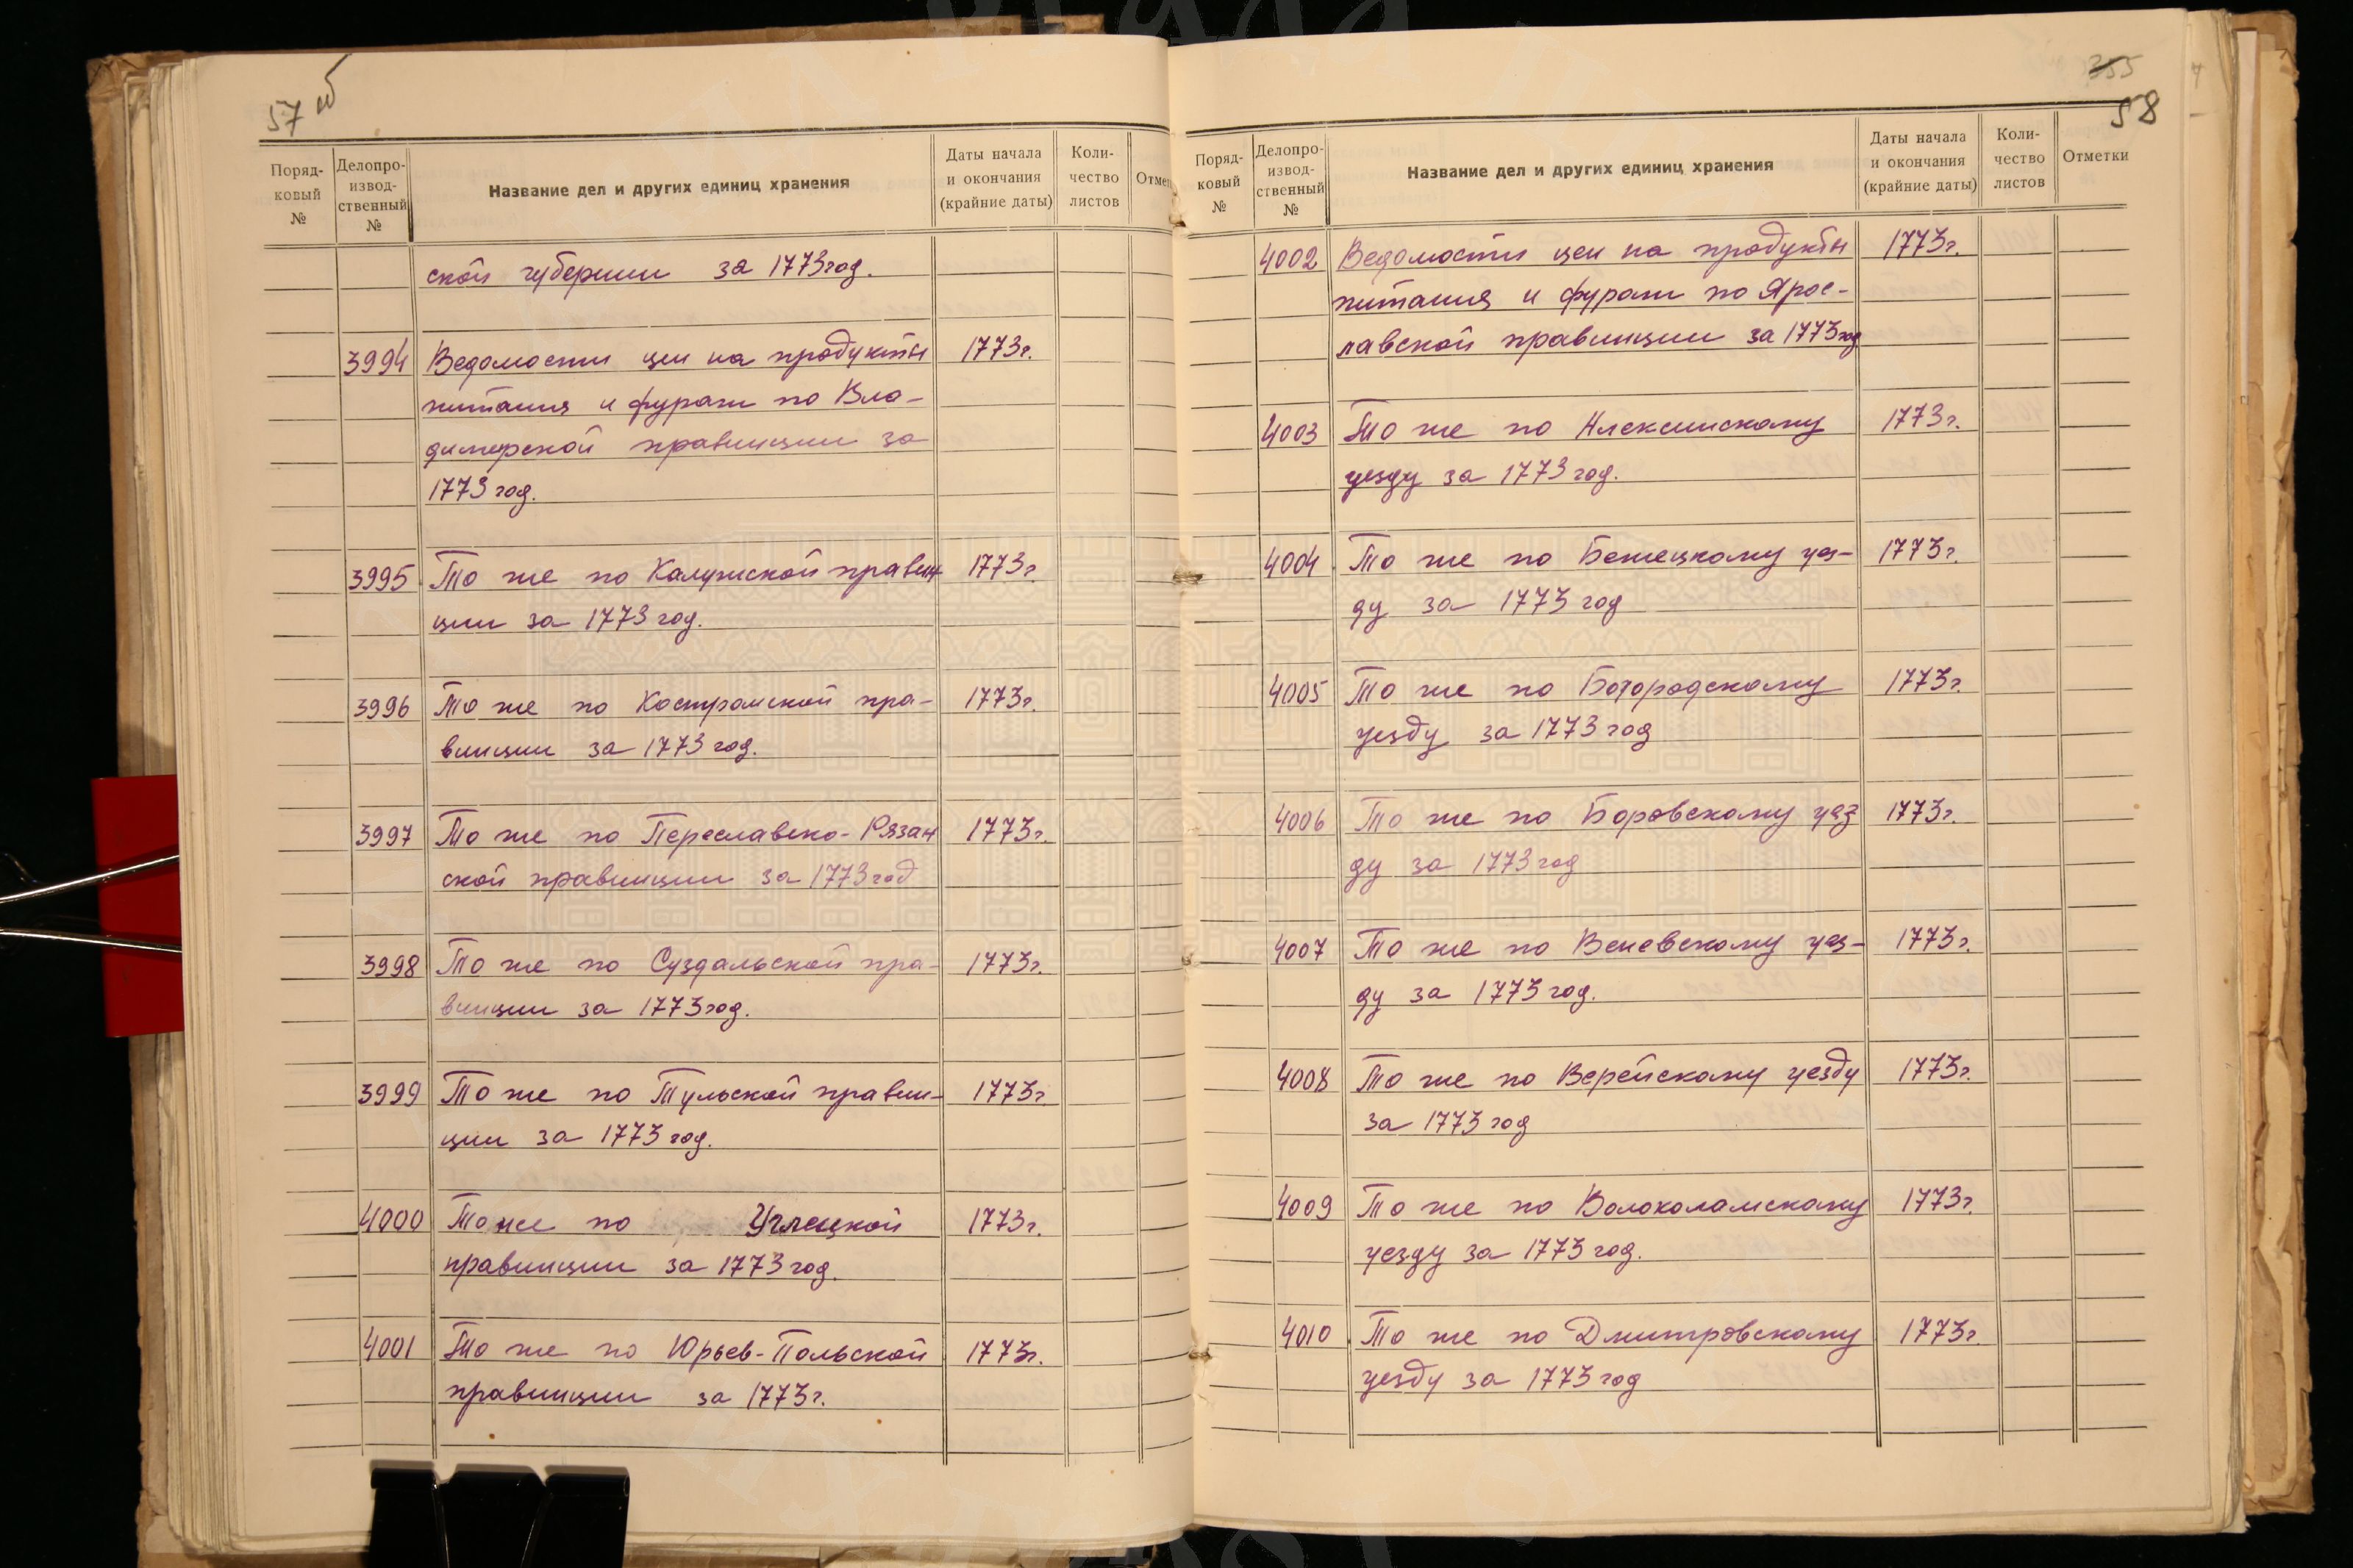 57 об
Поряд-
ковый
№
Делопро-
извод-
ственный
№
Название дел и других единиц хранения
Даты начала
и окончания
(крайние даты)
Коли-
чество
листов
Отмет
ской губернии за 1773 год.
3994 Ведомости цен на продукты 1773 г.
питания и фураж по Вла-
димирской правинции за
1773 год.
3995 То же по Калужской правин 1773 г.
ции за 1773 год.
3996 То же по Костромской пра- 1773 г.
винции за 1773 год.
3997 То же по Переславско-Рязан 1773 г.
ской правинции за 1773 год
3998 То же по Суздальской пра- 1773 г.
винции за 1773 год.
3999 То же по Тульской правин- 1773 г.
ции за 1773 год.
4000 То же по Углецкой 1773 г.
правинции за 1773 год.
4001 То же по Юрьев-Польской 1773 г.
правинции за 1773 г.
355
58
Поряд-
ковый
№
Делопро-
извод-
ственный
№
Название дел и других единиц хранения
Даты начала
и окончания
(крайние даты)
Коли-
чество
листов
Отметки
4002 Ведомости цен на продукты 1773 г.
питания и фураж по Ярос-
лавской правинции за 1773 год
4003 То же по Алексинскому 1773 г.
уезду за 1773 год.
4004 То же по Бежецкому уез- 1773 г.
ду за 1773 год
4005 То же по Богородскому 1773 г.
уезду за 1773 год
4006 То же по Боровскому уез 1773 г.
ду за 1773 год
4007 То же по Веневскому уез- 1773 г.
ду за 1773 год.
4008 То же по Верейскому уезду 1773 г.
за 1773 год
4009 То же по Волоколамскому 1773 г.
уезду за 1773 год.
4010 То же по Дмитровскому 1773 г.
уезду за 1773 год